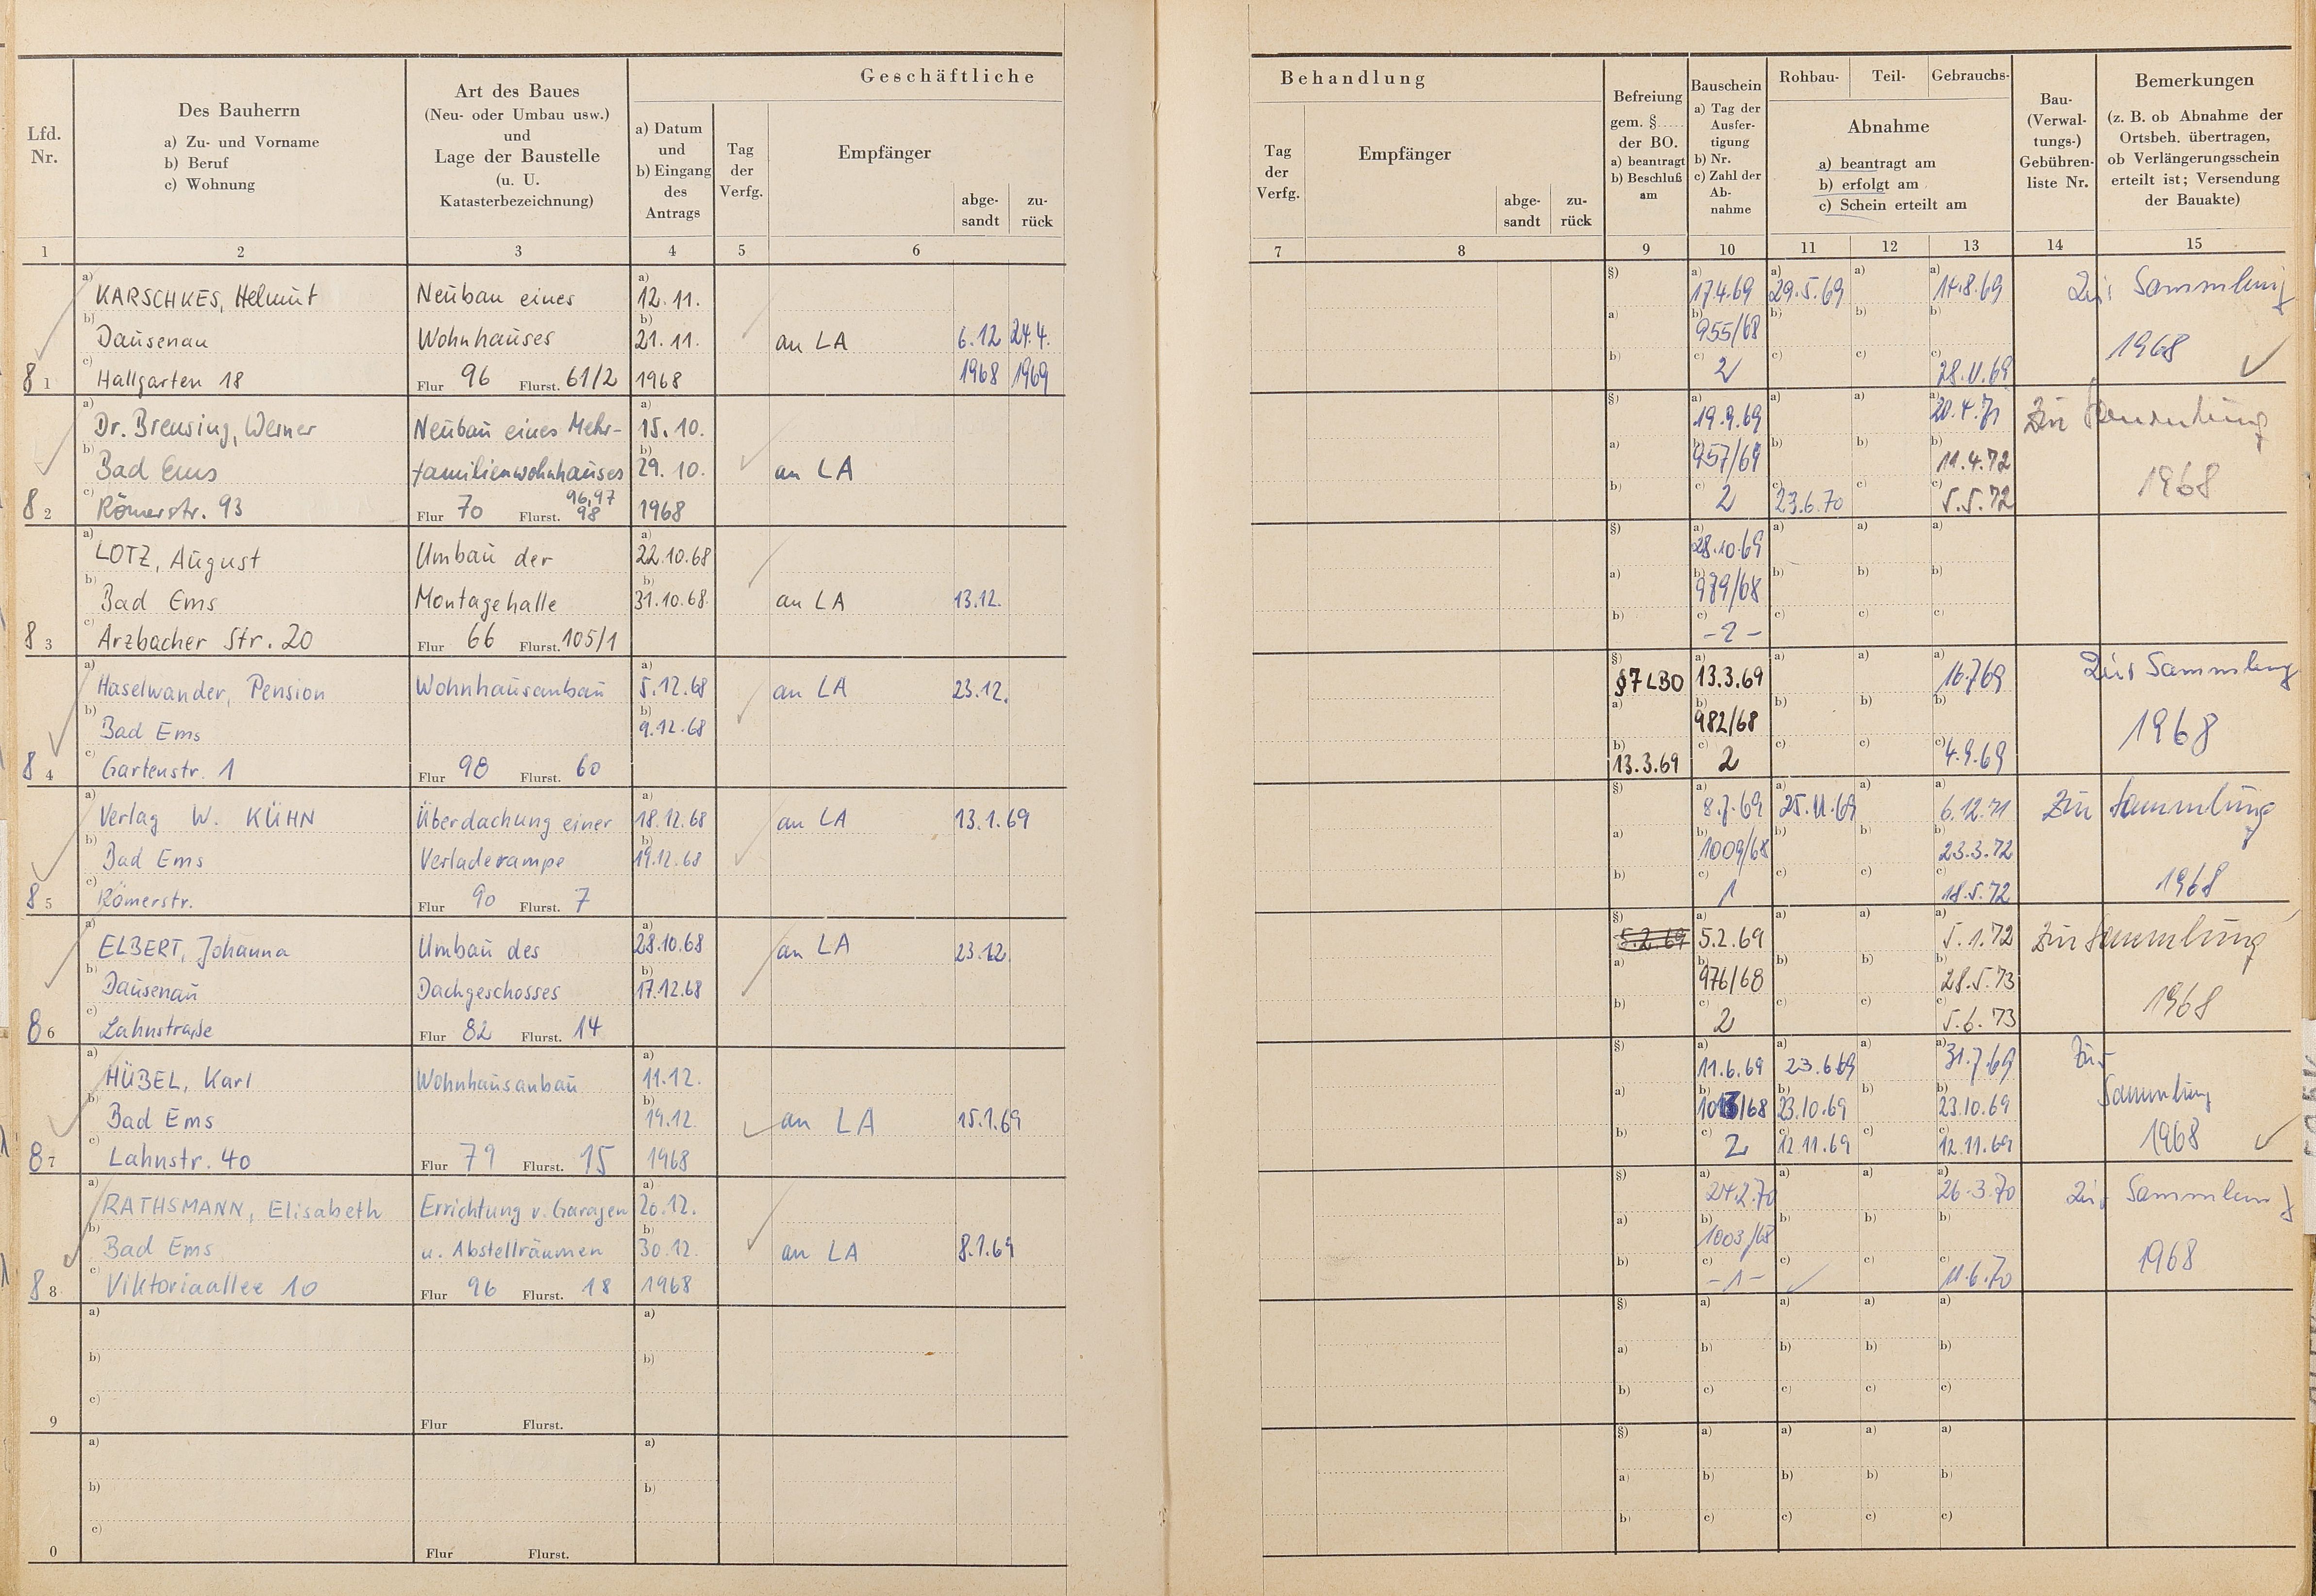 Geschäftliche
Lfd.
Nr.
Des Bauherrn
a) Zu- und Vorname
b) Beruf
c) Wohnung
Art des Baues
(Neu- oder Umbau usw.)
und
Lage der Baustelle
(u. U.
Katasterbezeichnung)
a) Datum
und
b) Eingang
des
Antrags
Tag
der
Verfg.
Empfänger
abge-
sandt
zu-
rück
1 2 3 4 5 6
a) KARSCHKES, Helmut Neubau eines a) 12.11.
b) Dausenau Wohnhauses b) 21.11. an LA 6.12 24.4.
81 c) Hallgarten 18 Flur 96 Flurst. 61/2 1968 1968 1969
a) Dr. Breusing, Werner Neubau eines Mehr- a) 15.10.
b) Bad Ems familienwohnhauses b) 29.10. an LA
96,97
82 c) Römerstr. 93 Flur 70 Flurst. 98 1968
a) LOTZ, August Umbau der a) 22.10.68
b) Bad Ems Montagehalle b) 31.10.68. an LA 13.12.
83 c) Arzbacher Str. 20 Flur 66 Flurst. 105/1
a) Haselwander, Pension Wohnhausanbau a) 5.12.68 an LA 23.12.
b) Bad Ems b) 9.12.68
84 c) Gartenstr. 1 Flur 98 Flurst. 60
a) Verlag W. KÜHN Überdachung einer a) 18.12.68 an LA 13.1.69
b) Bad Ems Verladerampe b) 19.12.68
85 c) Römerstr. Flur 90 Flurst. 7
a) ELBERT, Johanna Umbau des a) 28.10.68 an LA 23.12.
b) Dausenau Dachgeschosses b) 17.12.68
86 c) Lahnstraße Flur 82 Flurst. 14
a) HÜBEL, Karl Wohnhausanbau a) 11.12.
b) Bad Ems b) 19.12. an LA 15.1.69
87 c) Lahnstr. 40 Flur 79 Flurst. 15 1968
a) RATHSMANN, Elisabeth Errichtung v. Garagen a) 20.12.
b) Bad Ems u. Abstellräumen b) 30.12. an LA 8.1.69
88 c) Viktoriaallee 10 Flur 96 Flurst. 18 1968
a) a)
b) b)
c)
9 Flur Flurst.
a) a)
b) b)
c)
0 Flur Flurst.
Behandlung
Tag
der
Verfg.
Empfänger
abge-
sandt
zu-
rück
Befreiung
gem. §.....
der BO.
a) beantragt
b) Beschluß
am
Bauschein
a) Tag der
Ausfer-
tigung
b) Nr.
c) Zahl der
Ab-
nahme
Rohbau- Teil- Gebrauchs-
Abnahme
a) beantragt am
b) erfolgt am
c) Schein erteilt am
Bau-
(Verwal-
tungs-)
Gebühren-
liste Nr.
Bemerkungen
(z. B. ob Abnahme der
Ortsbeh. übertragen,
ob Verlängerungsschein
erteilt ist; Versendung
der Bauakte)
7 8 9 10 11 12 13 14 15
§) a) 17.4.69 a) 29.5.69 a) a) 14.8.69 Zur Sammlung
a) b) 955/68 b) b) b) 1968
b) c) 2 c) c) c) 28.11.69
§) a) 19.9.69 a) a) a) 20.4.71 Zur Sammlung
a) b) 957/69 b) b) b) 19.4.72 1968
b) c) 2 c) 23.6.70 c) c) 5.5.72
§) a) 28.10.69 a) a) a)
a) b) 989/68 b) b) b)
b) c) -2- c) c) c)
§) §7 LBO a) 13.3.69 a) a) a) 16.7.69 Zur Sammlung
a) b) 982/68 b) b) b) 1968
b) 13.3.69 c) 2 c) c) c) 4.9.69
§) a) 8.7.69 a) 25.11.69 a) a) 6.12.71 Zur Sammlung
a) b) 1009/68 b) b) b) 23.3.72
b) c) 1 c) c) c) 18.5.72 1968
§) 5.2.69 a) 5.2.69 a) a) a) 5.1.72 Zur Sammlung
a) b) 976/68 b) b) b) 28.5.73
b) c) 2 c) c) c) 5.6.73 1968
§) a) 11.6.69 a) 23.6.69 a) a) 31.7.69 Zur
a) b) /68 b) 23.10.69 b) b) 23.10.69 Sammlung
b) c) 2 c) 12.11.69 c) c) 12.11.69 1968
§) a) 24.2.70 a) a) a) 26.3.70 Zur Sammlung
a) b) 1003/68 b) b) b) 1968
b) c) -1- c) c) c) 11.6.70
§) a) a) a) a)
a) b) b) b) b)
b) c) c) c) c)
§) a) a) a) a)
a) b) b) b) b)
b) c) c) c) c)